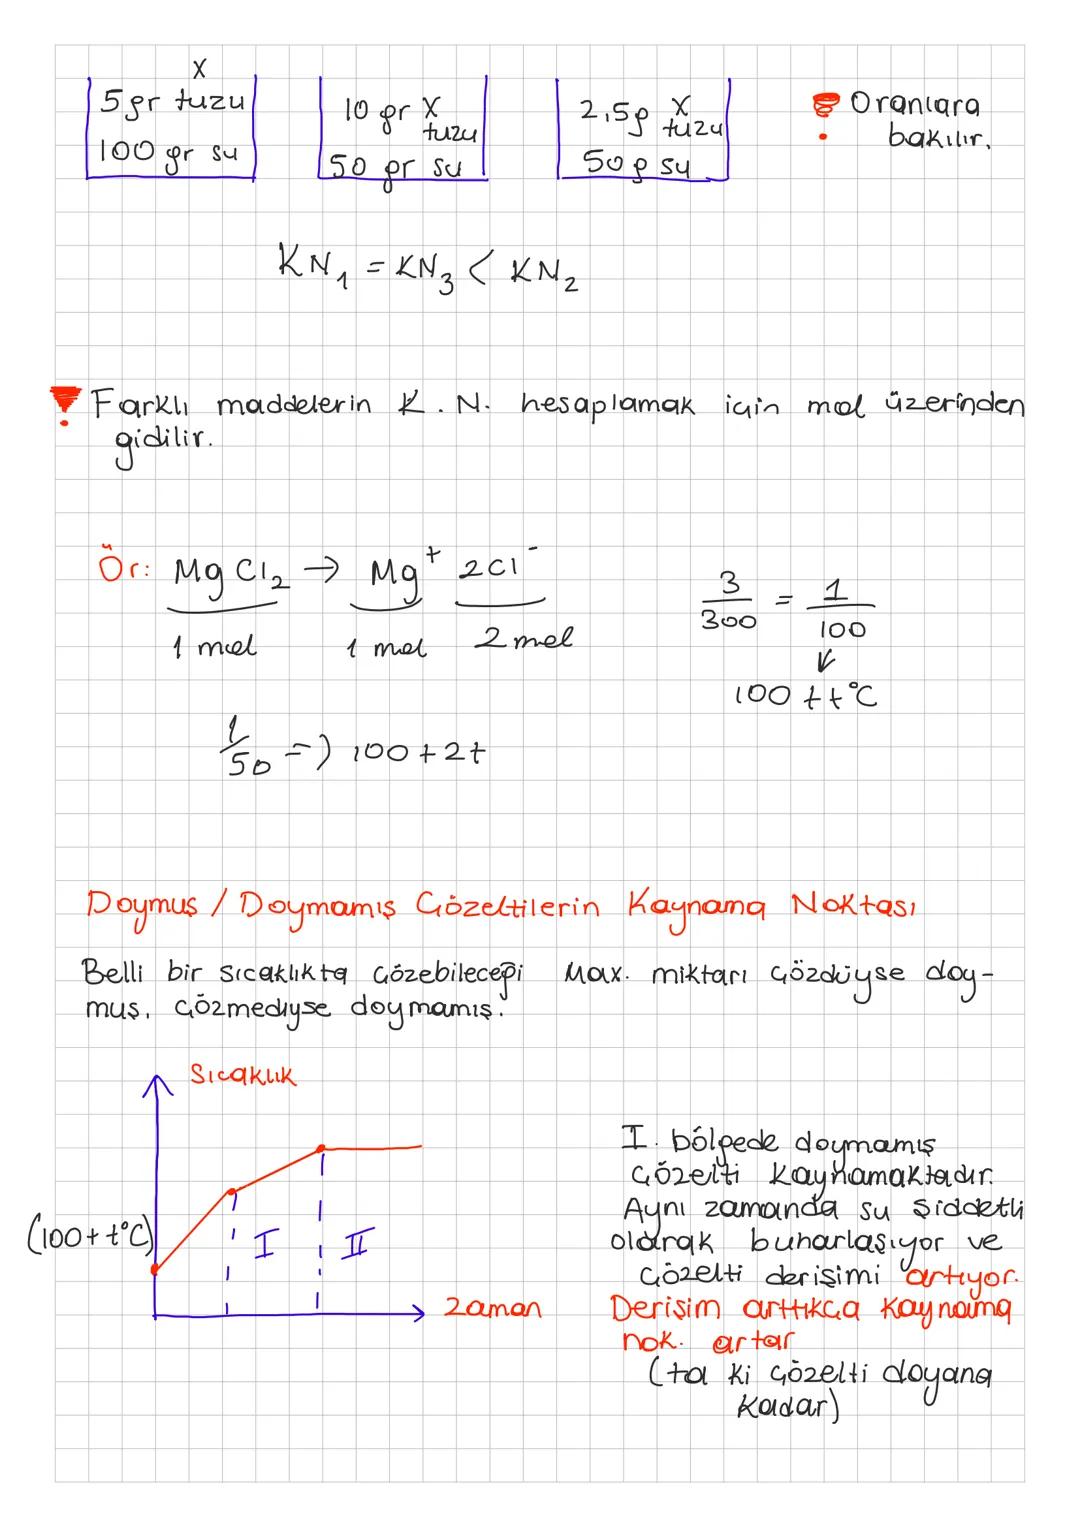 X
5gr tuzu
100 gr su
10 gr X
tuzu
50 gr su
2,5g X
tuzu
50 g su
! Oranlara
bakılır.
KN₁ = KN₃ < KN₂
! Farklı maddelerin K.N. hesaplamak için mol üzerinden
gidilir.
Ör: MgCl₂ → Mg⁺ 2Cl⁻
1 mol 1 mol 2 mol
3/300 = 1/100
↓
100 + t°C
1/50 => 100+2t
Doymuş / Doymamış Çözeltilerin Kaynama Noktası
Belli bir sıcaklıkta çözebileceği Max. miktarı çözdüyse doy-
muş, çözmediyse doymamış.
Sıcaklık
(100+t°C)
I II
Zaman
I. bölgede doymamış
çözelti kaynamaktadır.
Aynı zamanda su şiddetli
olarak buharlaşıyor ve
çözelti derişimi artıyor.
Derişim arttıkça Kaynama
nok. artar
(ta ki çözelti doyana
kadar)